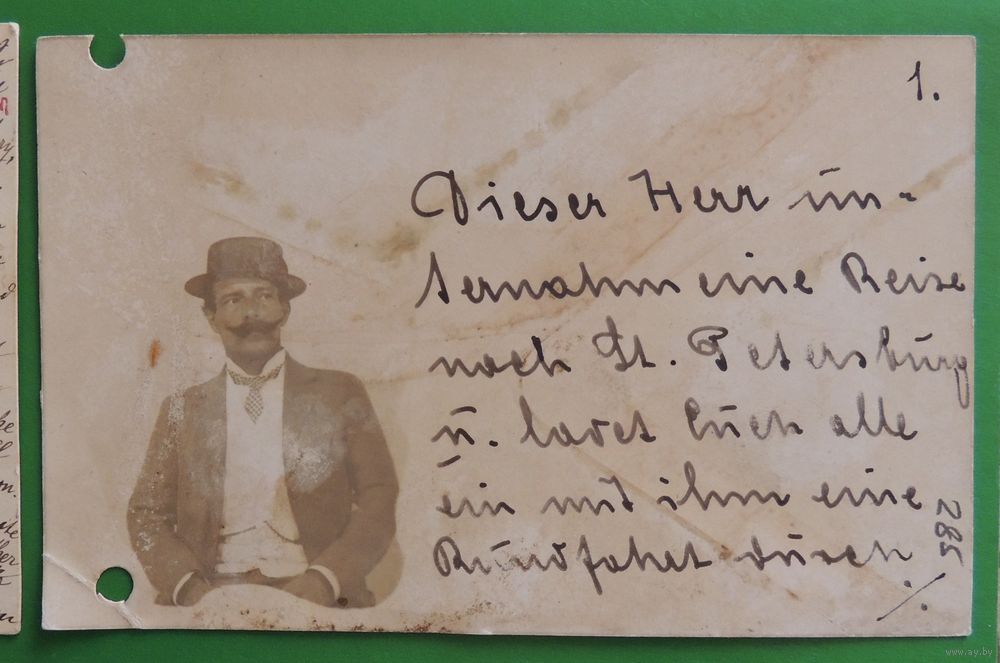 1.
Dieser Herr un-
ternahm eine Reise
nach St. Petersburg
u. ladet Euch alle
ein mit ihm eine
Rundfahrt durch
./.
285
www.ay.by